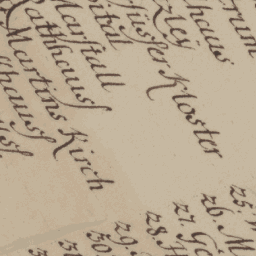 rum
haus
zley
füsser Kloster
pital
Marstall
Rathhaus
Martins Kirch
hhaus
25.
26. M
27. Gö
28. H
29.
30.